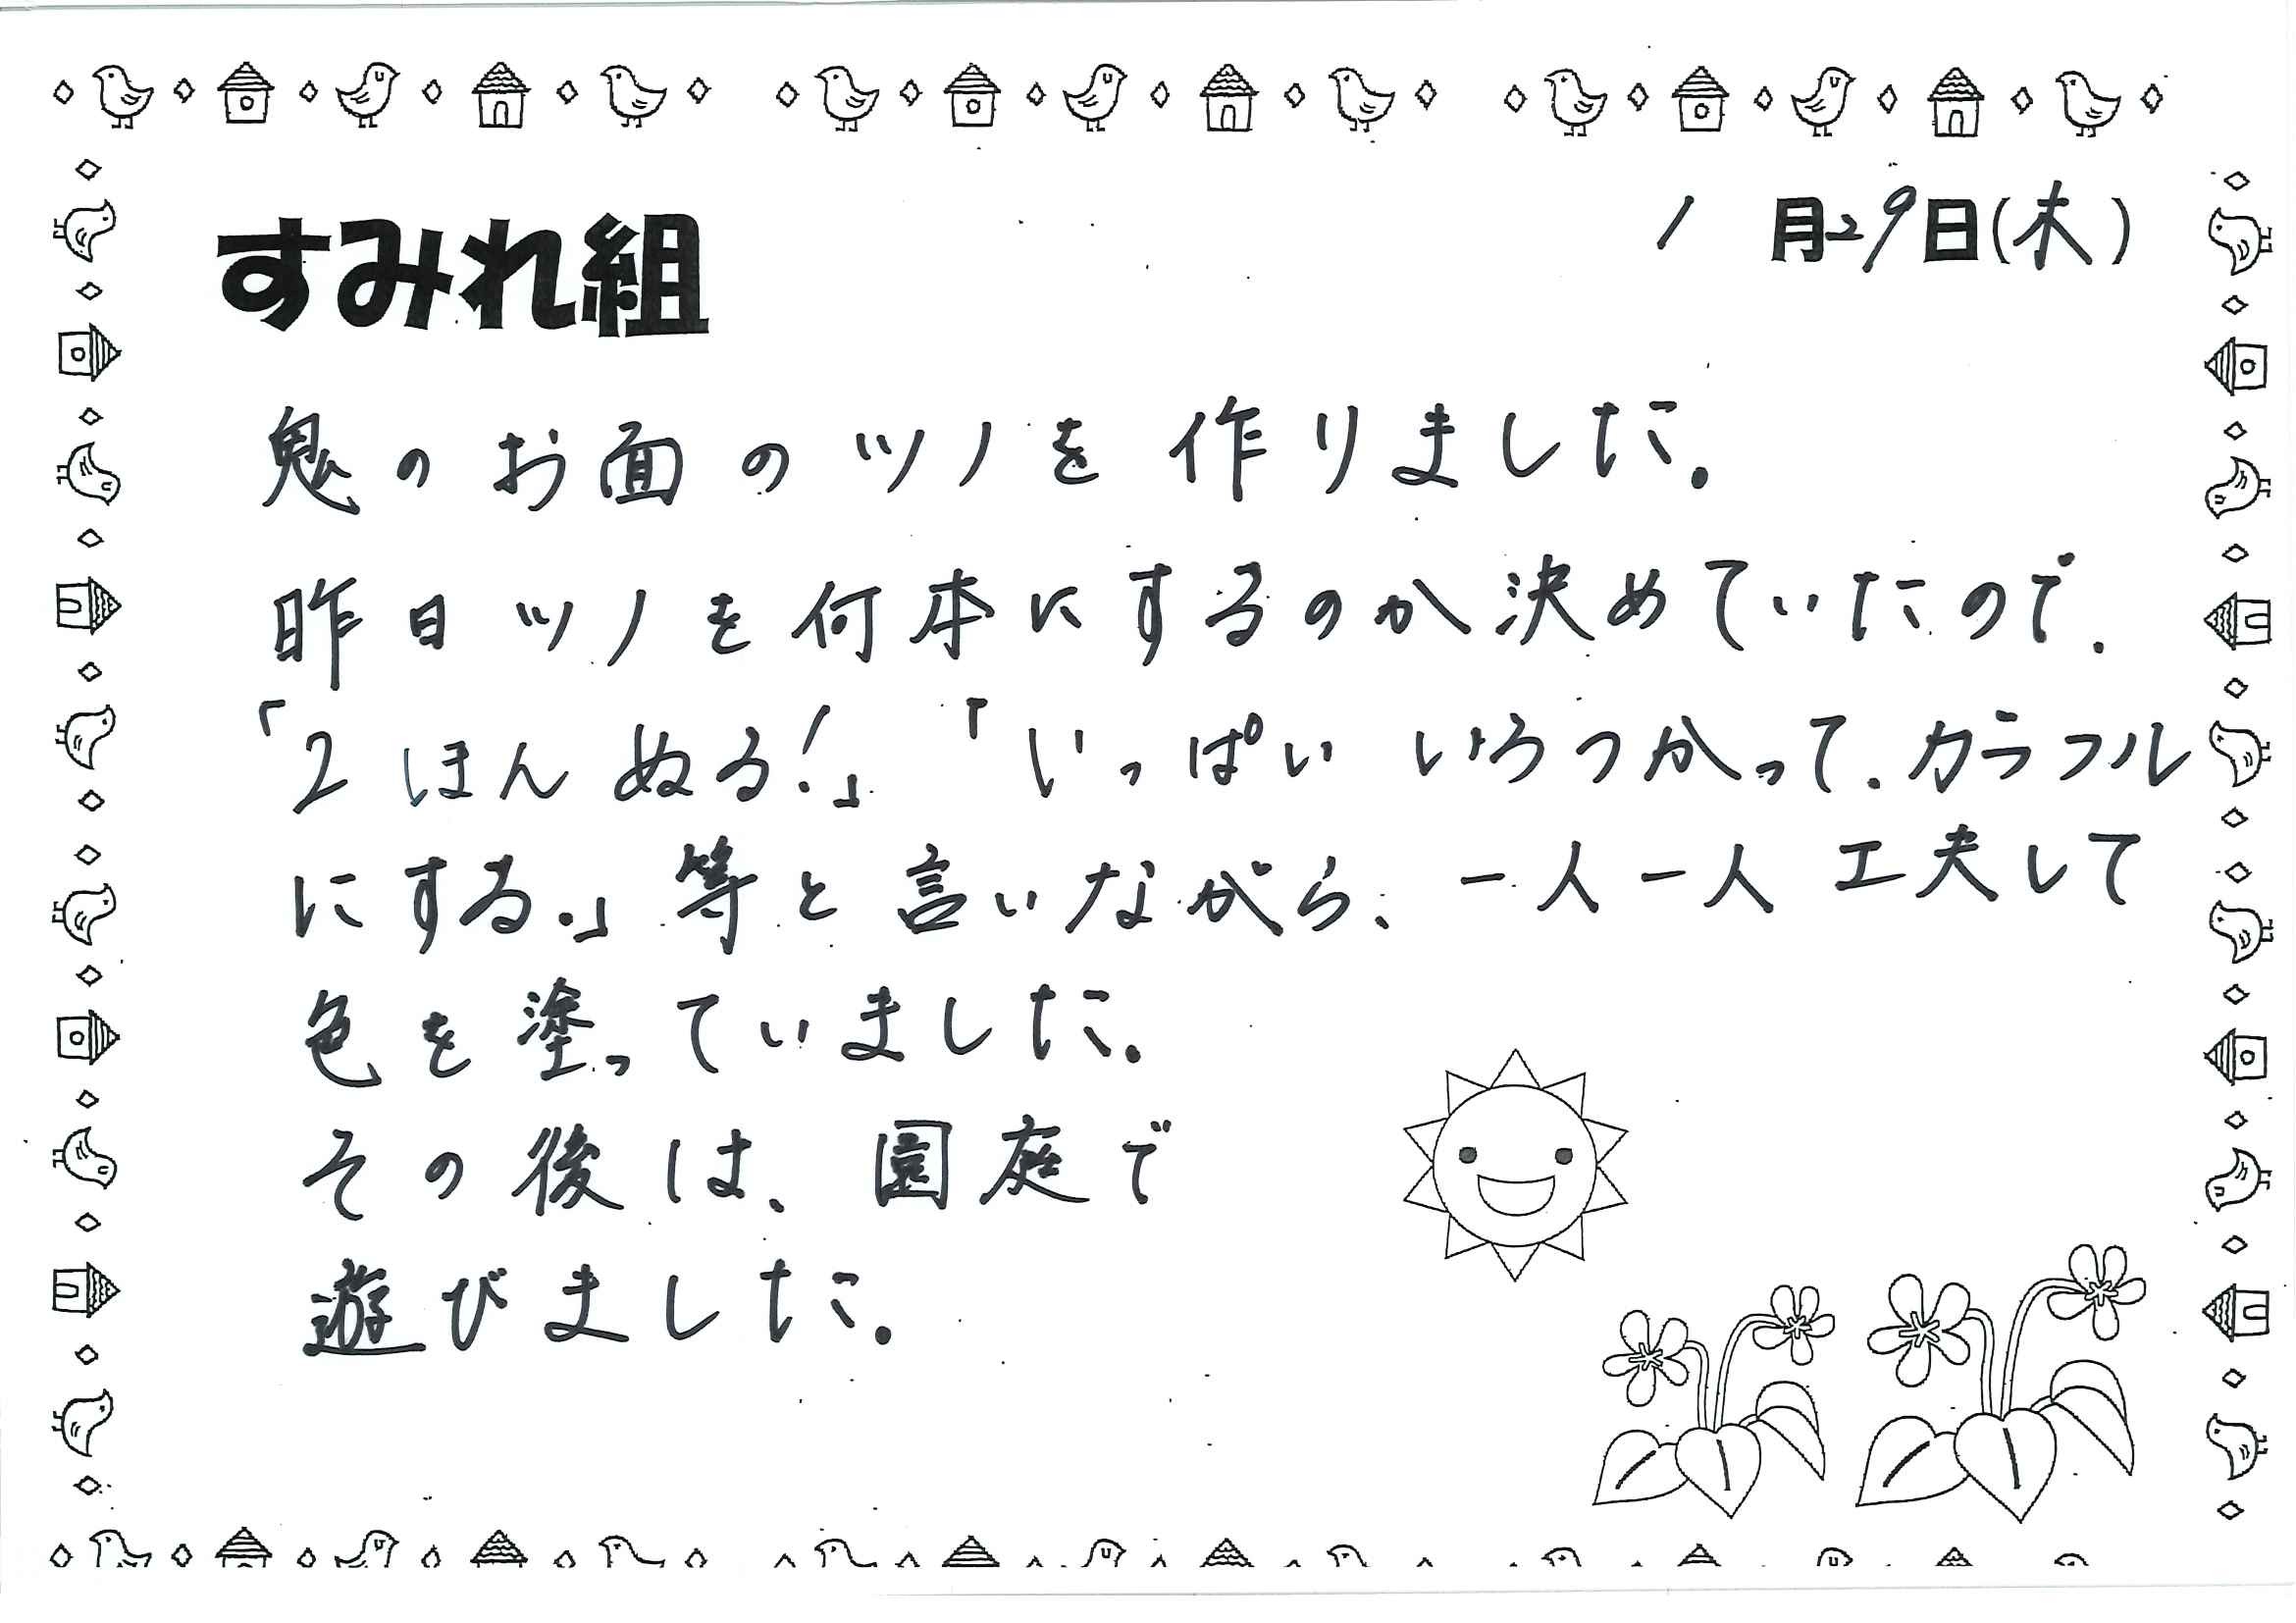 すみれ組
1月29日(木)
鬼のお面のツノを作りました。
昨日ツノを何本にするのか決めていたので、
「2ほんぬる!」「いっぱいいろつかって、カラフル
にする。」等と言いながら、一人一人工夫して
色を塗っていました。
その後は、園庭で
遊びました。